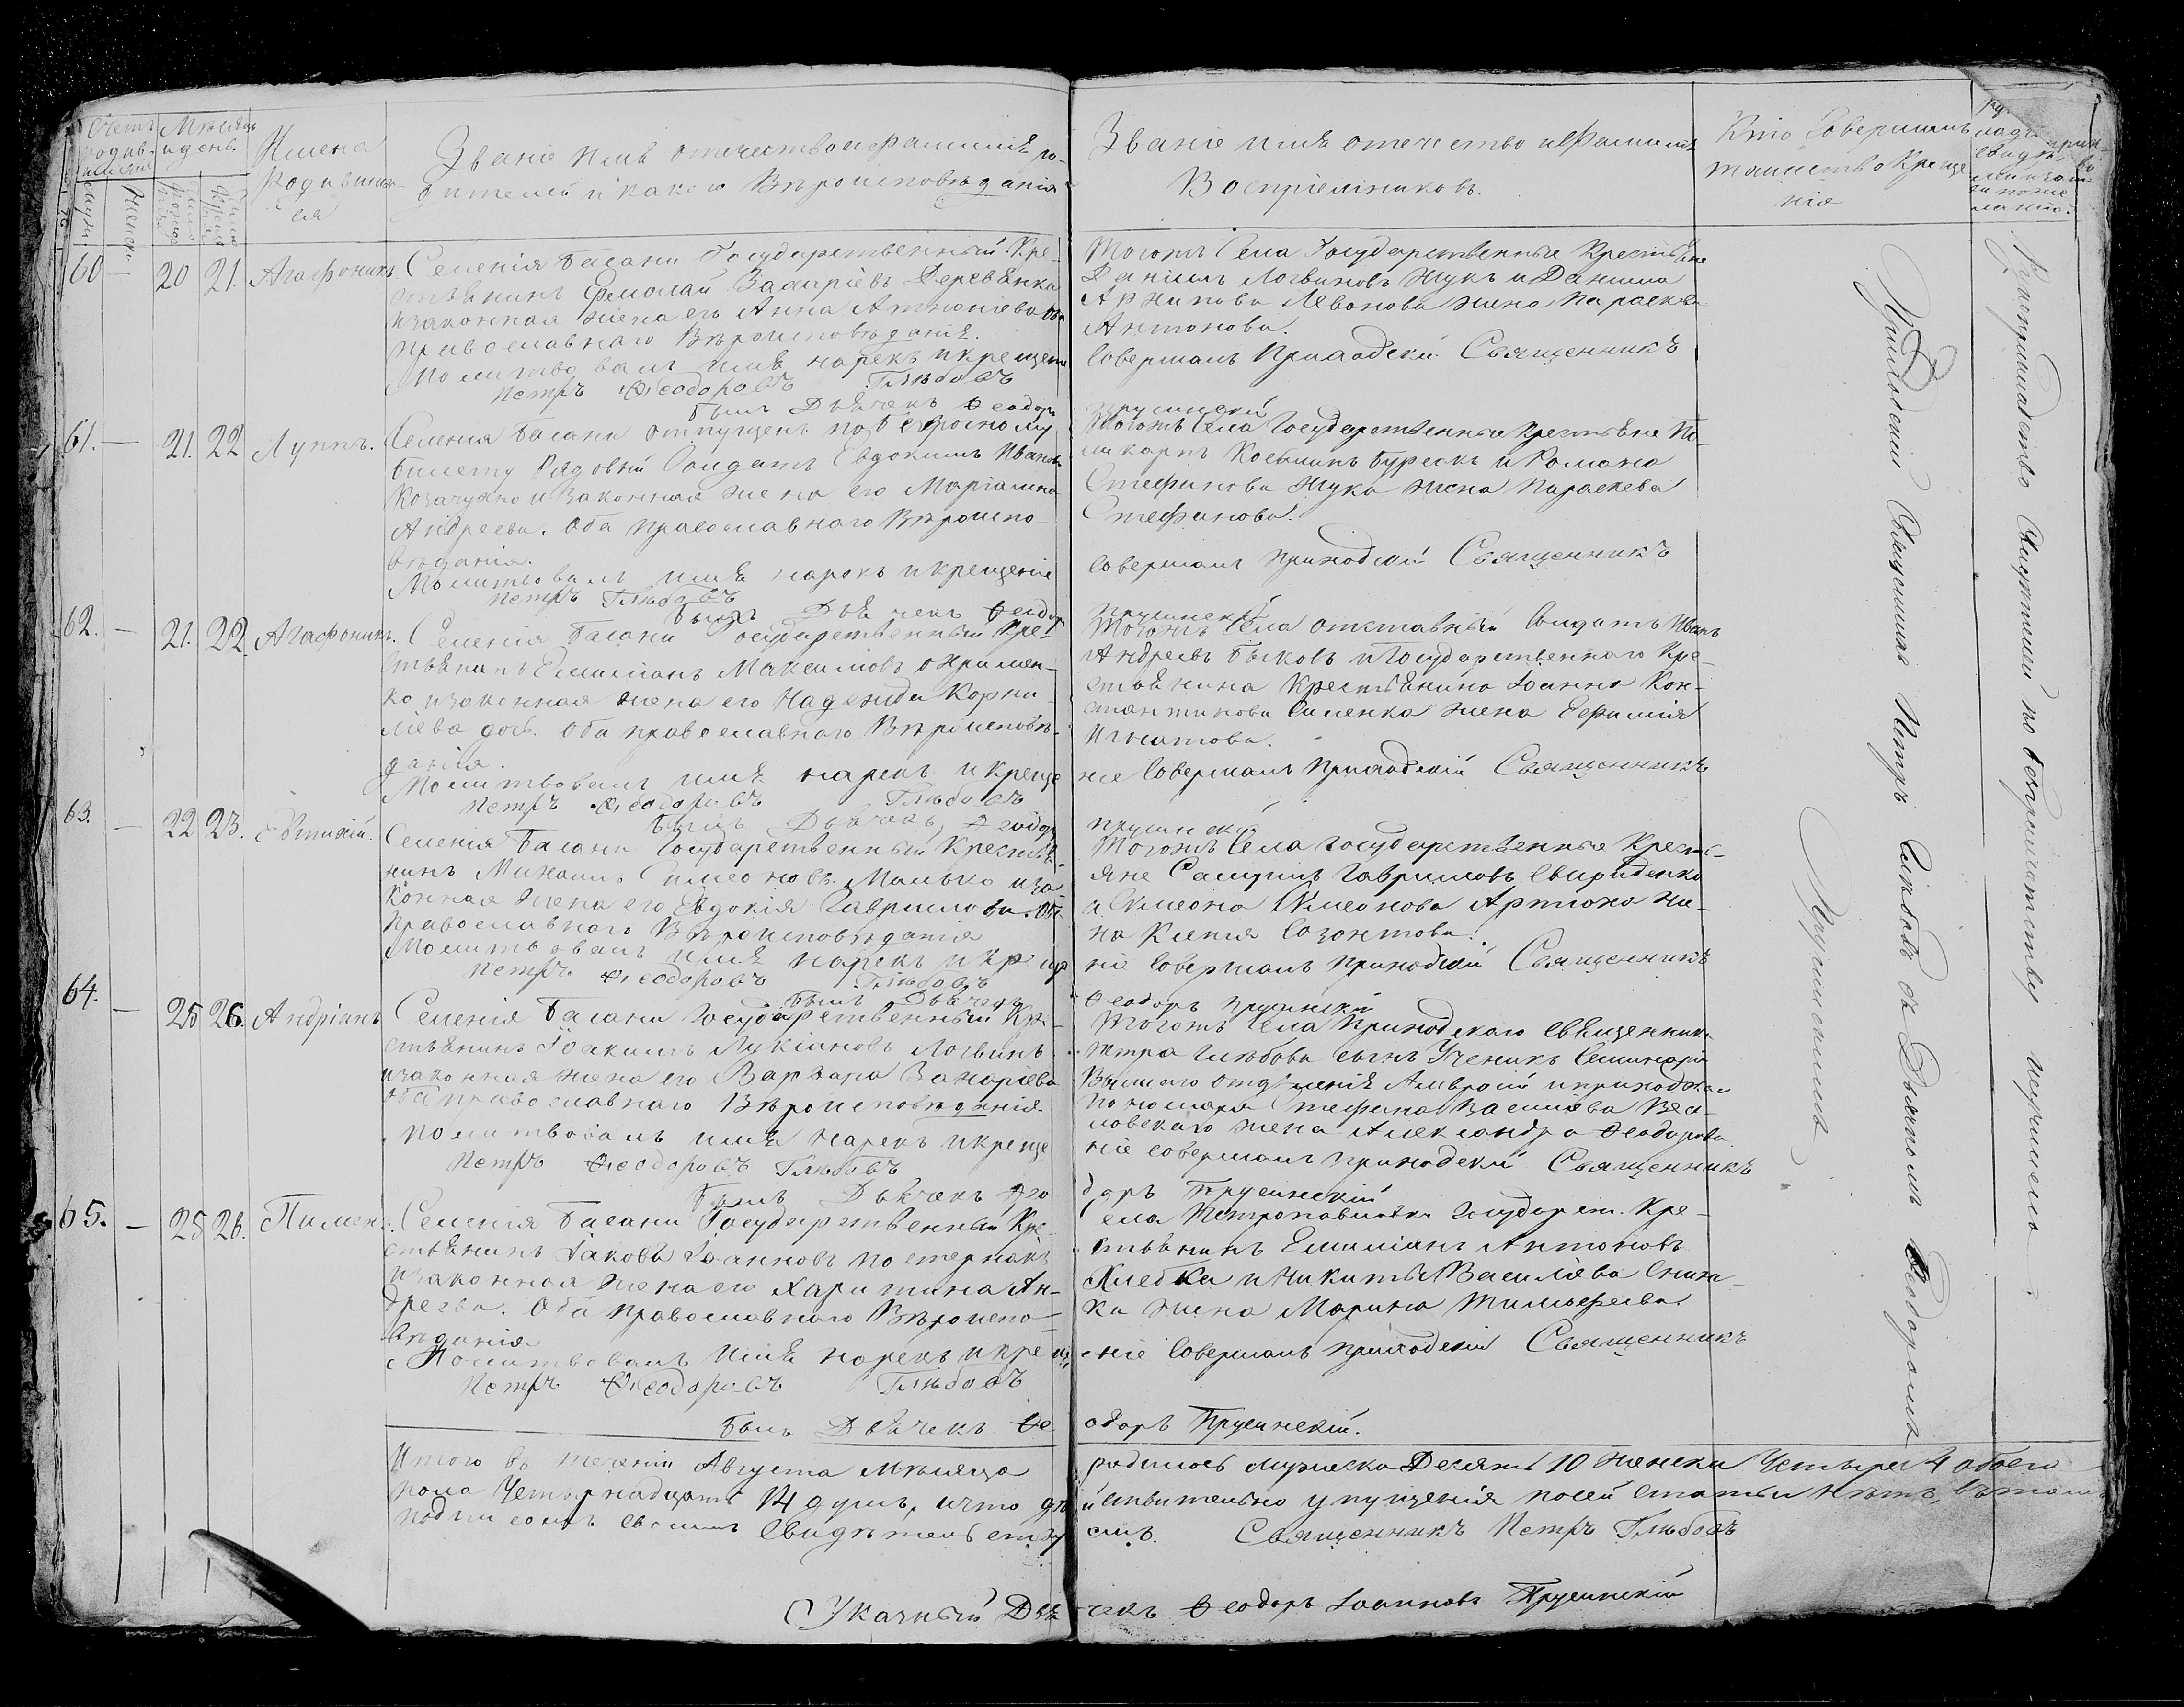 Счетъ родив-шихся
Мѣсяцъ и день.
Имена Родивших-ся
Званіе имя отечество и фамилія ро-
дителей и какого Вѣроисповѣданія
Званіе имя отечество и Фамилія
Воспріемниковъ.
Кто Совершалъ
таинство Креще
нія
60 — 20 21. Агафоникъ
Селенія Басани Государственный Кре-
стьянинъ Ермолай Захаріевъ Деревянка
и законная жена его Анна
православнаго Вѣроисповѣданія.
Молитвовалъ имя нарекъ и крещеніе
Петръ Феодоровъ Глѣбовъ
былъ Дьячекъ Феодоръ
Тогожъ Села Государственные Крестьяне
Даніилъ Логвиновъ Жукъ и Даніила
Архипова Левонова жена Параскева
Антонова.
Совершалъ Приходскій Священникъ
Прусинскій
61. — 21. 22 Луппъ.
Селенія Басани отпущенъ по безсрочному
билету Рядовый Солдатъ Евдокимъ Ивановъ
и Законная жена его Маріамна
Андреева. Оба православнаго Вѣроиспо-
вѣданія.
Молитвовалъ имя нарекъ и крещеніе
Петръ Глѣбовъ
былъ Дьячекъ Феодоръ
Тогожъ Села Государственные Крестьяне По-
ликарпъ Косминъ и Романа
Стефанова Жука жена Параскева
Стефанова.
Совершалъ приходскій Священникъ
Прусинскій
62. — 21. 22. Агафоникъ.
Селенія Басани Государственный Кре-
стьянинъ Емиліанъ Максимовъ Охримен-
ко и законная жена его Надежда Корни-
ліева дочь. Оба православнаго Вѣроисповѣ-
данія.
Молитвовалъ имя нарекъ и креще
Петръ Феодоровъ Глѣбовъ
былъ Дьячекъ Феодоръ
Тогожъ Села отставный Солдатъ Иванъ
Андреевъ Быковъ и Государственнаго Кре-
стьянина Крестьянина Іоанна Кон-
стантинова Силенка жена Евфимія
Игнатова.
ніе Совершалъ Приходскій Священникъ
Прусинскій
63. — 22 23. Евтихій.
Селенія Басани Государственный Крестья-
нинъ Михаилъ Симеоновъ Малько и за-
конная жена его Евдокія Гаврилова. Оба
Православнаго Вѣроисповѣданія
Молитвовалъ имя нарекъ и креще
Петръ Феодоровъ Глѣбовъ
былъ Дьячекъ
Тогожъ Села Государственные Кресть-
яне Самуилъ Гавриловъ Свириденко
и Симеона Симеонова Артюха же-
на Ксенія Созонтова.
ніе Совершалъ приходскій Священникъ
Феодоръ Прусинскій
64. — 25 26. Андріанъ
Селенія Басани Государственный Кре-
стьянинъ Іоакимъ Лукіановъ Логвинъ
и законная жена его Варвара Захаріева
Оба православнаго Вѣроисповѣданія
Молитвовалъ имя нарекъ и креще
Петръ Феодоровъ Глѣбовъ
былъ Дьячекъ Фео
Тогожъ Села Приходскаго Священника
Петра Глѣбова сынъ Ученикъ Семинаріи
Высшаго отдѣленія Амвросій и приходскаго
пономаря Стефана Василіева
жена Александра Феодорова.
ніе Совершалъ приходскій Священникъ
доръ Прусинскій
65. — 25 26. Пименъ.
Селенія Басани Государственный Кре-
стьянинъ Іаковъ Іоанновъ Постернакъ
и законная жена его Харитина Ан-
дреева. Оба православнаго Вѣроиспо-
вѣданія
Молитвовалъ имя нарекъ и креще
Петръ Феодоровъ Глѣбовъ
былъ Дьячекъ Фе
села Петропавловки Государст. Кре-
стьянинъ Емиліанъ Антоновъ
и Никиты Василіева
жена Марина Тимофеева.
ніе Совершалъ приходскій Священникъ
одоръ Прусинскій.
Приходскій Священникъ Петръ Глѣбовъ съ Дьячкомъ Феодоромъ
Прусинскимъ
Итого въ теченіи Августа Мѣсяца
родилось мужеска Десять 10 женска Четыре 4 обоего
пола Четырнадцать 14 душъ, и что дѣ
йствительно упущенія посей статьи нѣтъ, въ томъ
подписомъ своимъ Свидѣтельству
емъ. Священникъ Петръ Глѣбовъ
Указный Дья
чекъ Феодоръ Іоанновъ Прусинскій